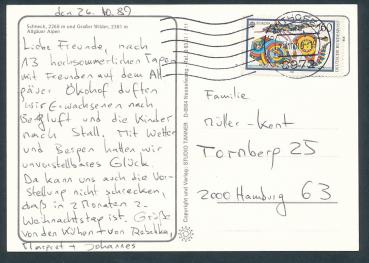 den 26.10.89
Schneck, 2268 m und Großer Wilder, 2381 m
Allgäuer Alpen
Liebe Freunde, nach
13 hochsommerlichen Tagen
mit Freunden auf dem All-
gäuer Ökohof duften
wir Erwachsenen nach
Bergluft und die Kinder
nach Stall. Mit Wetter
und Bergen hatten wir
unvorstellbares Glück.
Da kann uns auch die Vor-
stellung nicht schrecken,
daß in 2 Monaten 2.
Weihnachtstag ist. Grüße
von den Kühen + von Rebekka,
Margret + Johannes
Copyright und Verlag: STUDIO TANNER
EUROPA
100
DEUTSCHE BUNDESPOST
Familie
Müller-Kent
Tornberg 25
2000 Hamburg 63